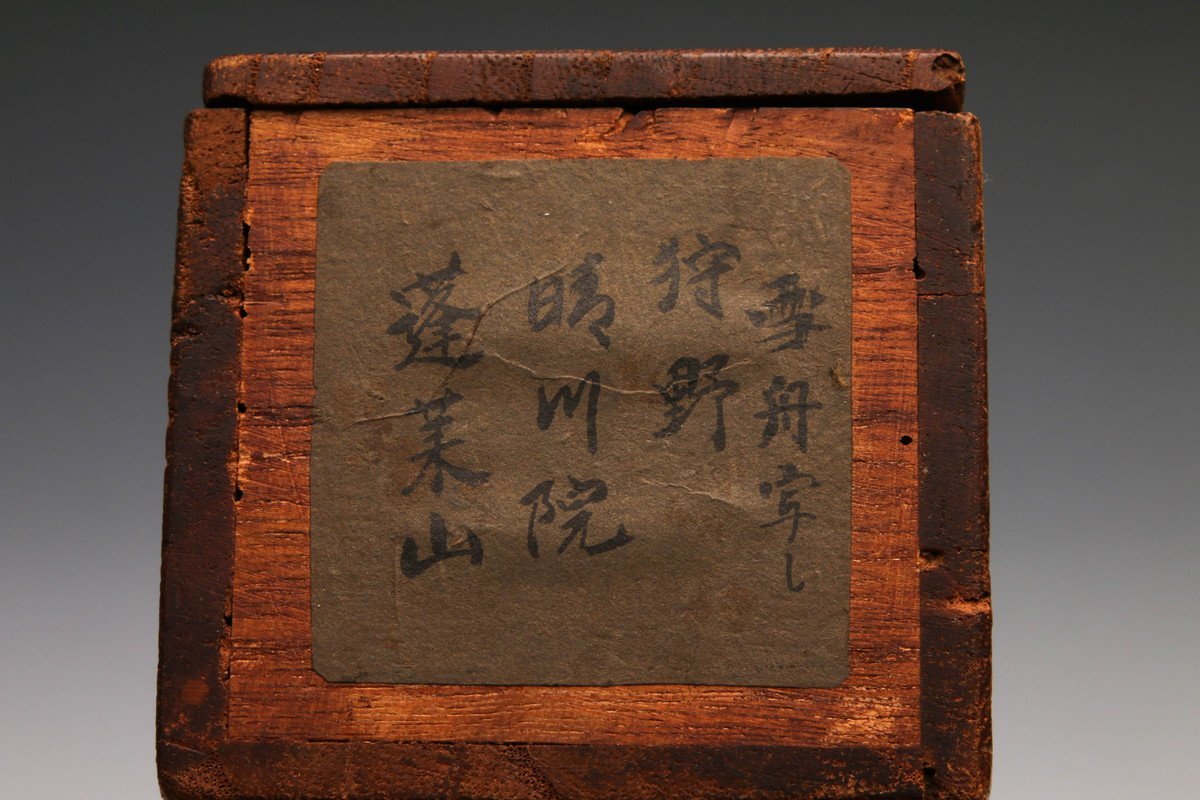 雪舟写し
狩野
晴川院
蓬莱山